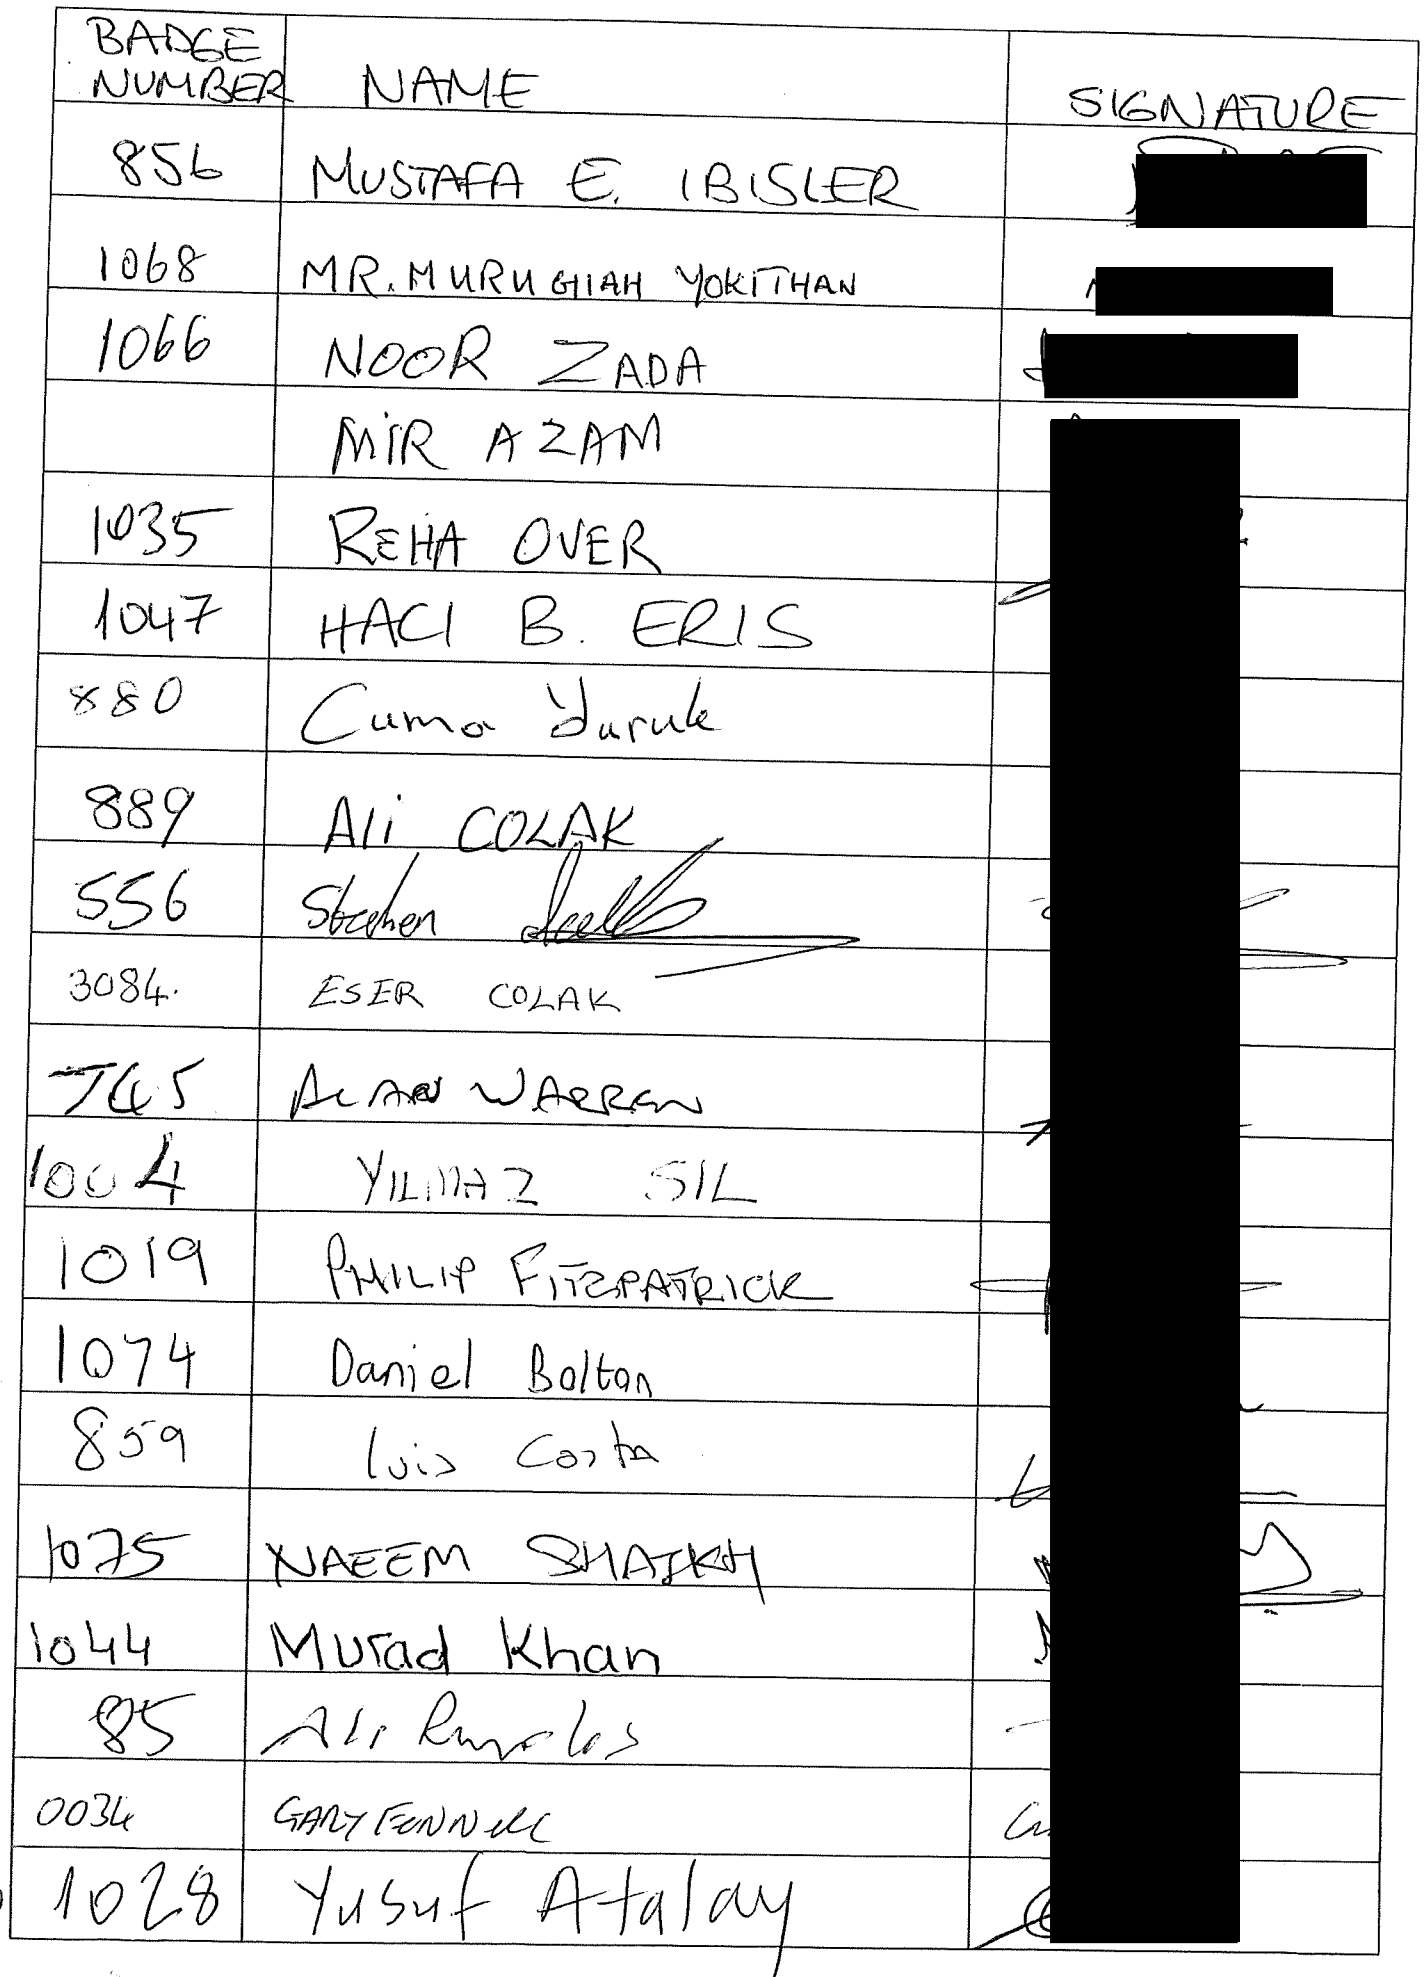 BADGE NUMBER NAME SIGNATURE
856 MUSTAFA E. IBISLER
1068 MR. MURUGIAH YOKITHAN
1066 NOOR ZADA
MIR AZAM
1035 REHA OVER
1047 HACI B. ERIS
880 Cuma Yuruk
889 Ali COLAK
556 Stephen
3084. ESER COLAK
745 ALAN WARREN
1004 YILMAZ SIL
1019 PHILIP FITZPATRICK
1074 Daniel Bolton
859 luis Costa
1075 NAEEM SHAIKH
1044 Murad Khan
85 Ali
0034 GARY FENNELL
1028 Yusuf Atalay